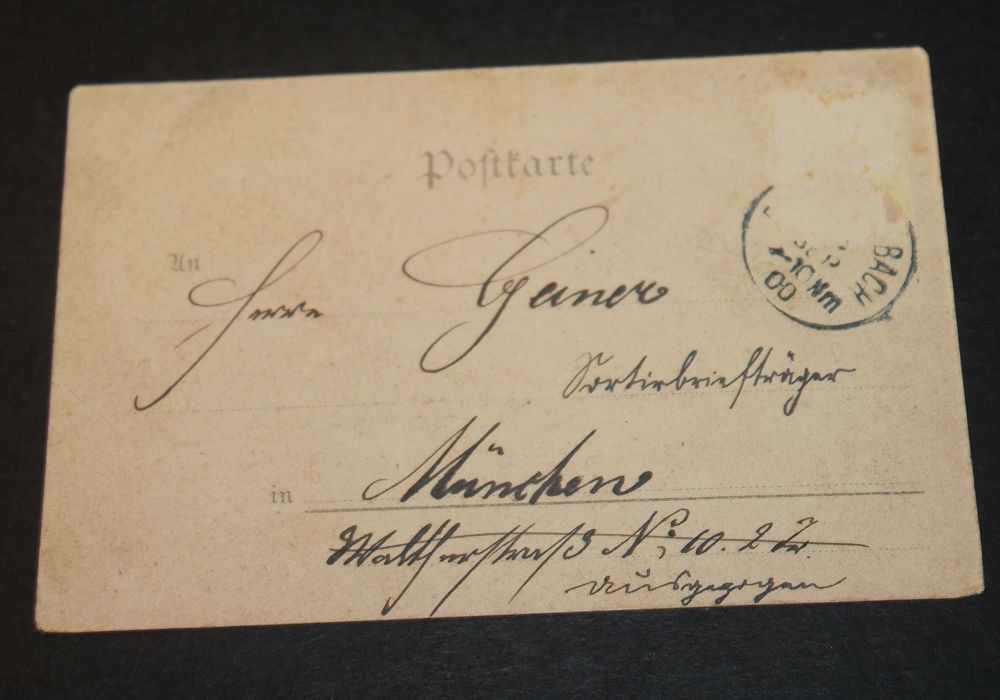 Postkarte
An
Herrn Geiner
Sortirbriefträger
in München
Waltherstraß No 10. 2 Tr.
ausgezogen
BACH
SEP
7-10 Nm
00